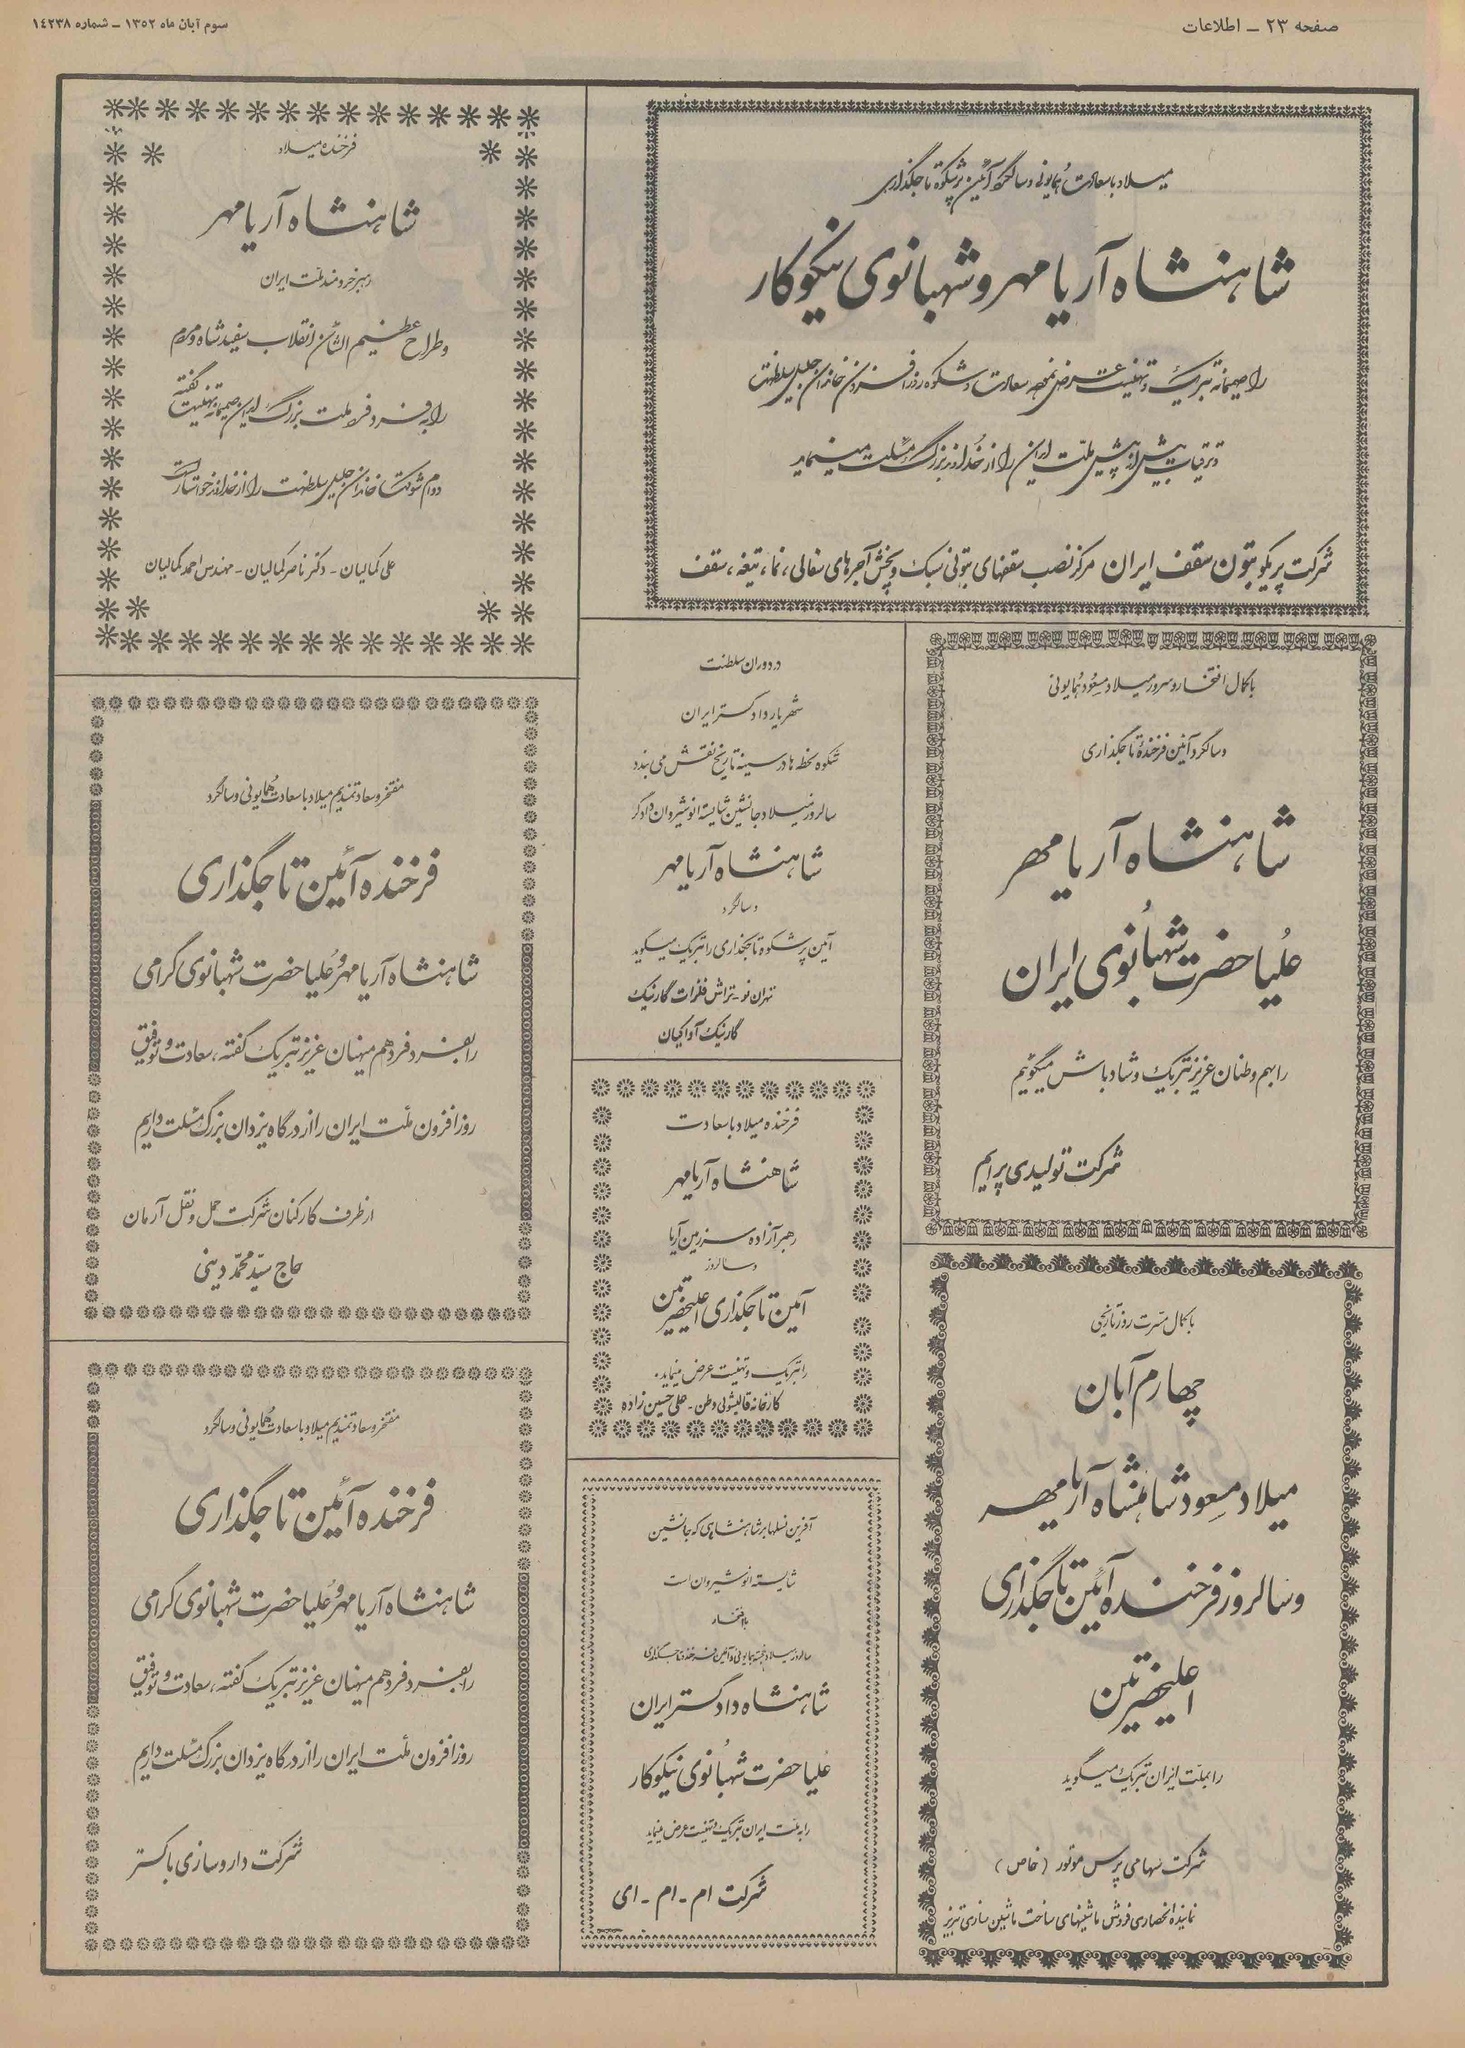 صفحه ۲۳ ـ اطلاعات
سوم آبان ماه ۱۳۵۲ ـ شماره ۱۴۲۳۸
میلاد با سعادت همایونی و سالگرد آئین پرشکوه تاجگذاری
شاهنشاه آریامهر و شهبانوی نیکوکار
را صمیمانه تبریک و تهنیت عرض نموده سعادت و شکوه روزافزون خاندان جلیل سلطنت
و ترقیات بیش از پیش ملت ایران را از خداوند بزرگ مسئلت مینماید
شرکت پریکو بتون سقف ایران مرکز نصب سقفهای بتونی سبک و پخش آجرهای سفالی، نما، تیغه، سقف
فرخنده میلاد
شاهنشاه آریامهر
رهبر خردمند ملت ایران
و طراح عظیم الشأن انقلاب سفید شاه و مردم
را به فرد فرد ملت بزرگ ایران صمیمانه تهنیت گفته
دوام شوکت خاندان جلیل سلطنت را از خداوند خواستار است
علی کمالیان - دکتر ناصر کمالیان - مهندس احمد کمالیان
با کمال افتخار و سرور میلاد مسعود همایونی
و سالگرد آئین فرخنده تاجگذاری
شاهنشاه آریامهر
علیاحضرت شهبانوی ایران
را بهم وطنان عزیز تبریک و شادباش میگوئیم
شرکت تولیدی پرایم
در دوران سلطنت
شهریار دادگستر ایران
شکوه لحظه ها در سینه تاریخ نقش می بندد
سالروز میلاد جانشین شایسته انوشیروان دادگر
شاهنشاه آریامهر
و سالگرد
آئین پرشکوه تاجگذاری را تبریک میگوید
تهران نو - تراش فلزات گارنیک
گارنیک آواکیان
مفتخر و سعادتمندیم میلاد با سعادت همایونی و سالگرد
فرخنده آئین تاجگذاری
شاهنشاه آریامهر و علیاحضرت شهبانوی گرامی
را بفرد فرد هم میهنان عزیز تبریک گفته، سعادت و توفیق
روزافزون ملت ایران را از درگاه یزدان بزرگ مسئلت داریم
از طرف کارکنان شرکت حمل و نقل آرمان
حاج سید محمد دینی
فرخنده میلاد با سعادت
شاهنشاه آریامهر
رهبر آزاده سرزمین آریا
و سالروز
آئین تاجگذاری اعلیحضرتین
را تبریک و تهنیت عرض مینماید.
کارخانه قالیشوئی وطن - علی حسین زاده
با کمال مسرت روز تاریخی
چهارم آبان
میلاد مسعود شاهنشاه آریامهر
و سالروز فرخنده آئین تاجگذاری
اعلیحضرتین
را بملت ایران تبریک میگوید
شرکت سهامی پرس موتور (خاص)
نماینده انحصاری فروش ماشینهای ساخت ماشین سازی تبریز
آفرین نسلها بر شاهنشاهی که جانشین
شایسته انوشیروان است
با افتخار
سالروز میلاد خجسته همایونی و آئین فرخنده تاجگذاری
شاهنشاه دادگستر ایران
علیاحضرت شهبانوی نیکوکار
را به ملت ایران تبریک و تهنیت عرض مینماید
شرکت ام - ام - ای
مفتخر و سعادتمندیم میلاد با سعادت همایونی و سالگرد
فرخنده آئین تاجگذاری
شاهنشاه آریامهر و علیاحضرت شهبانوی گرامی
را بفرد فرد هم میهنان عزیز تبریک گفته، سعادت و توفیق
روزافزون ملت ایران را از درگاه یزدان بزرگ مسئلت داریم
شرکت داروسازی باکستر